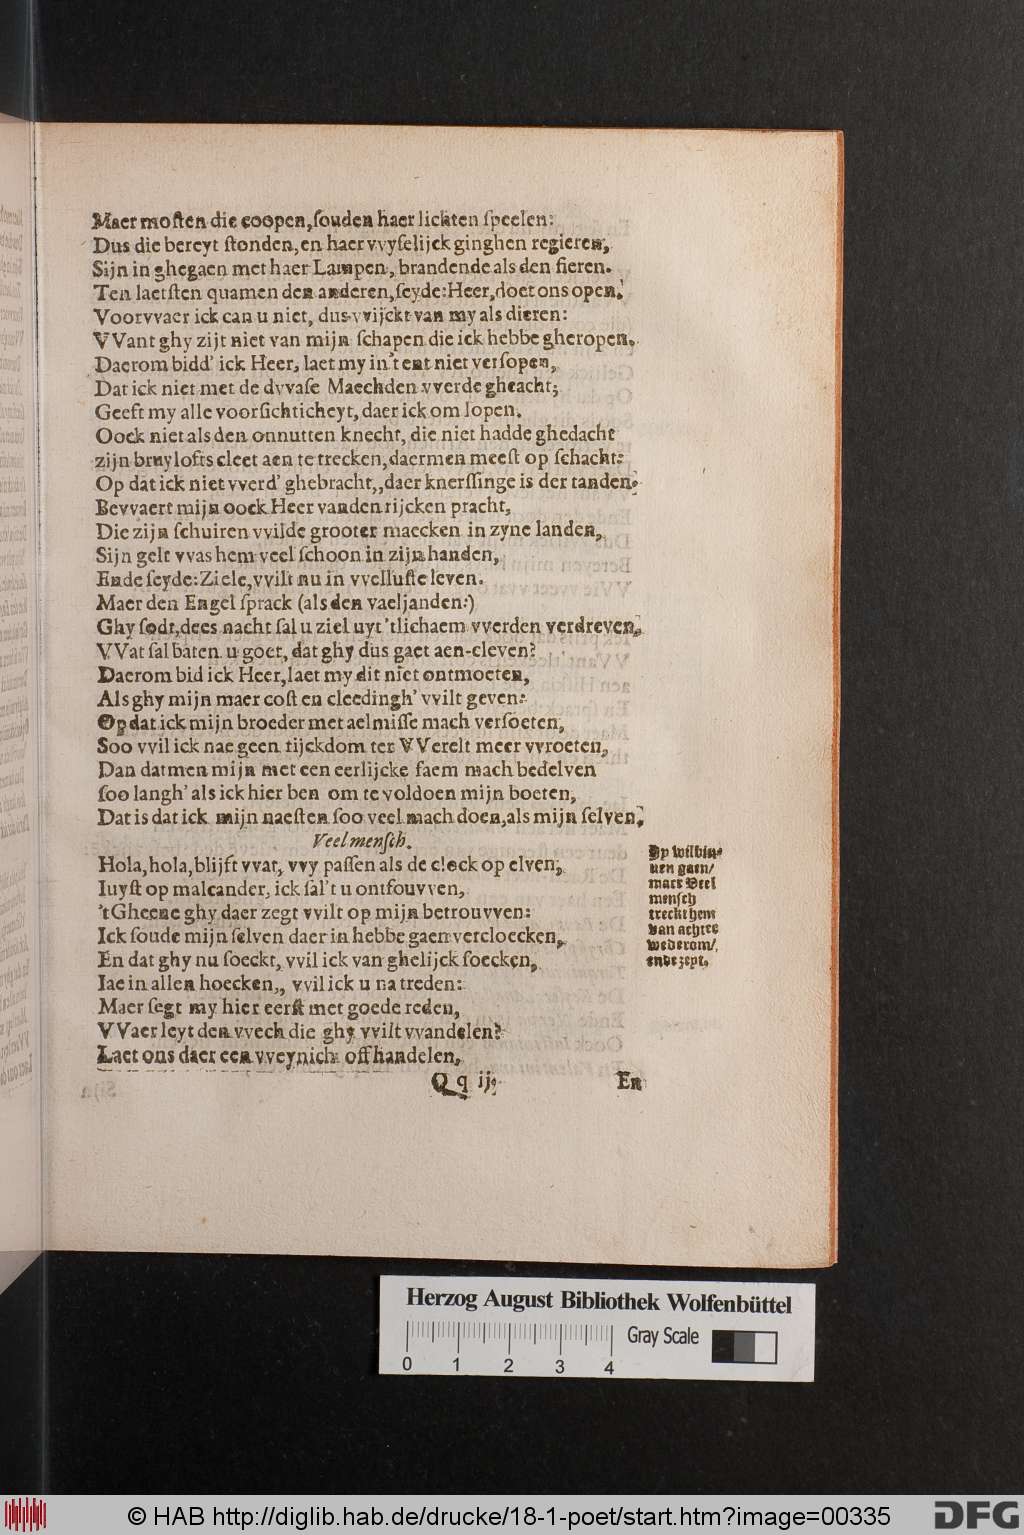 Maer mosten die coopen, souden haer lichten speelen:
Dus die bereyt stonden, en haer vvyselijck ginghen regieren,
Sijn in ghegaen met haer Lampen, brandende als den fieren.
Ten laetsten quamen den anderen, seyde: Heer, doet ons open,
Voorvvaer ick can u niet, dus vvijckt van my als dieren:
VVant ghy zijt niet van mijn schapen die ick hebbe gheropen,
Daerom bidd' ick Heer, laet my in't ent niet versopen,
Dat ick niet met de dvvase Maechden vverde gheacht;
Geeft my alle voorsichticheyt, daer ick om lopen.
Oock niet als den onnutten knecht, die niet hadde ghedacht
zijn bruylofts cleet aen te trecken, daermen meest op schacht:
Op dat ick niet vverd' ghebracht,, daer knerssinge is der tanden:
Bevvaert mijn oock Heer vanden rijcken pracht,
Die zijn schuiren vvilde grooter maecken in zyne landen,
Sijn gelt vvas hem veel schoon in zijn handen,
Ende seyde: Ziele, vvilt nu in vvelluste leven.
Maer den Engel sprack (als den vaeljanden:)
Ghy sodt, dees nacht sal u ziel uyt 'tlichaem vverden verdreven,
VVat sal baten u goet, dat ghy dus gaet aen-cleven?
Daerom bid ick Heer, laet my dit niet ontmoeten,
Als ghy mijn maer cost en cleedingh' vvilt geven:
Op dat ick mijn broeder met aelmisse mach versoeten,
Soo vvil ick nae geen rijckdom ter VVerelt meer vvroeten,
Dan datmen mijn met een eerlijcke faem mach bedelven
soo langh' als ick hier ben om te voldoen mijn boeten,
Dat is dat ick mijn naesten soo veel mach doen, als mijn selven.
Veel mensch.
Hola, hola, blijft vvat, vvy passen als de clock op elven,
Iuyst op malcander, ick sal't u ontfouvven,
'tGheene ghy daer zegt vvilt op mijn betrouvven:
Ick soude mijn selven daer in hebbe gaen vercloecken,
En dat ghy nu soeckt, vvil ick van ghelijck soecken,
Iae in allen hoecken,, vvil ick u na treden:
Maer segt my hier eerst met goede reden,
VVaer leyt den vvech die ghy vvilt vvandelen?
Laet ons daer een vveynich off handelen,
Op wilbin-
nen gaen/
maer Veel
mensch
treckt hem
van achter
wederom/
ende zept.
Qq ij.
En
Herzog August Bibliothek Wolfenbüttel
Gray Scale
0 1 2 3 4
© HAB http://diglib.hab.de/drucke/18-1-poet/start.htm?image=00335
DFG